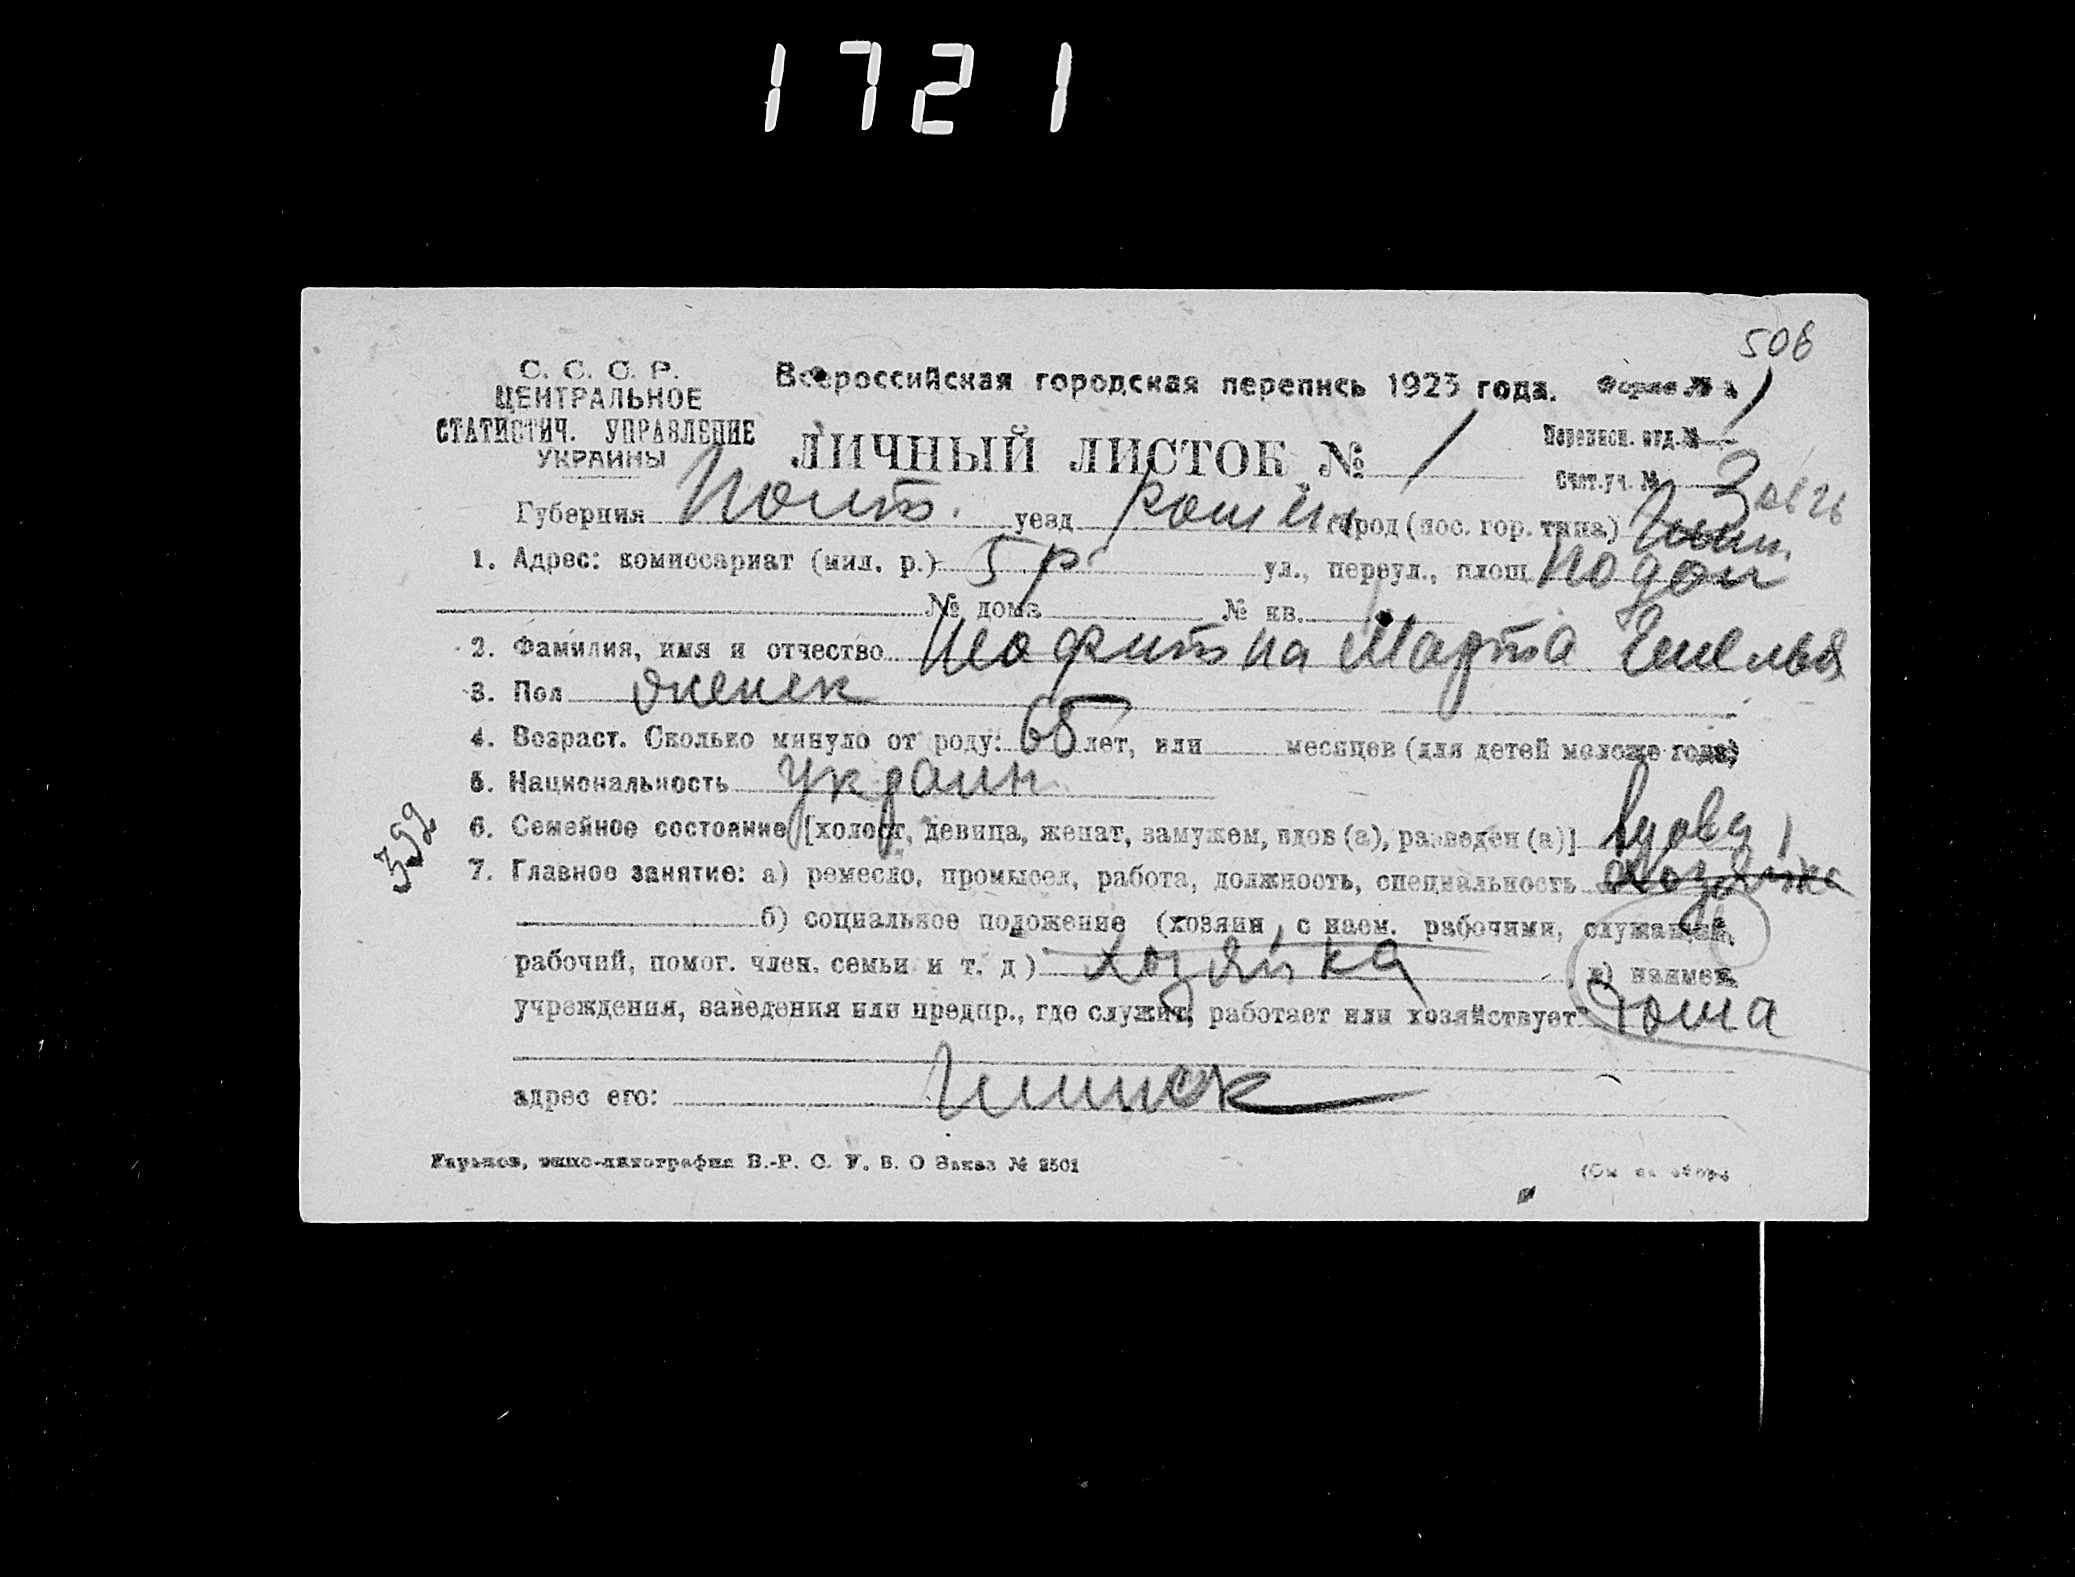 1721
506
С. С. С. Р.
ЦЕНТРАЛЬНОЕ
СТАТИСТИЧ. УПРАВЛЕНИЕ
УКРАИНЫ
Всероссийская городская перепись 1923 года. Форма №
ЛИЧНЫЙ ЛИСТОК № 1
Переписн. отд. № 1
Счет. уч. № 3
Губерния Полт. уезд город (пос. гор. типа)
1. Адрес: комиссариат (мил. р.) 5 р ул., переул., площ. Подол
№ дома № кв.
2. Фамилия, имя и отчество Марта
3. Пол женск
4. Возраст. Сколько минуло от роду: 65 лет, или месяцев (для детей моложе года)
5. Национальность Украин.
6. Семейное состояние [холост, девица, женат, замужем, вдов (а), разведен (а)] вдова
392
7. Главное занятие: а) ремесло, промысел, работа, должность, специальность хозяйка
б) социальное положение (хозяин с наем. рабочими, служащий,
рабочий, помог. член. семьи и т. д) хозяйка в) наимен.
учреждения, заведения или предпр., где служит, работает или хозяйствует дома
адрес его:
Харьков, типо-литография В.-Р. С. У. В. О Заказ № 2501